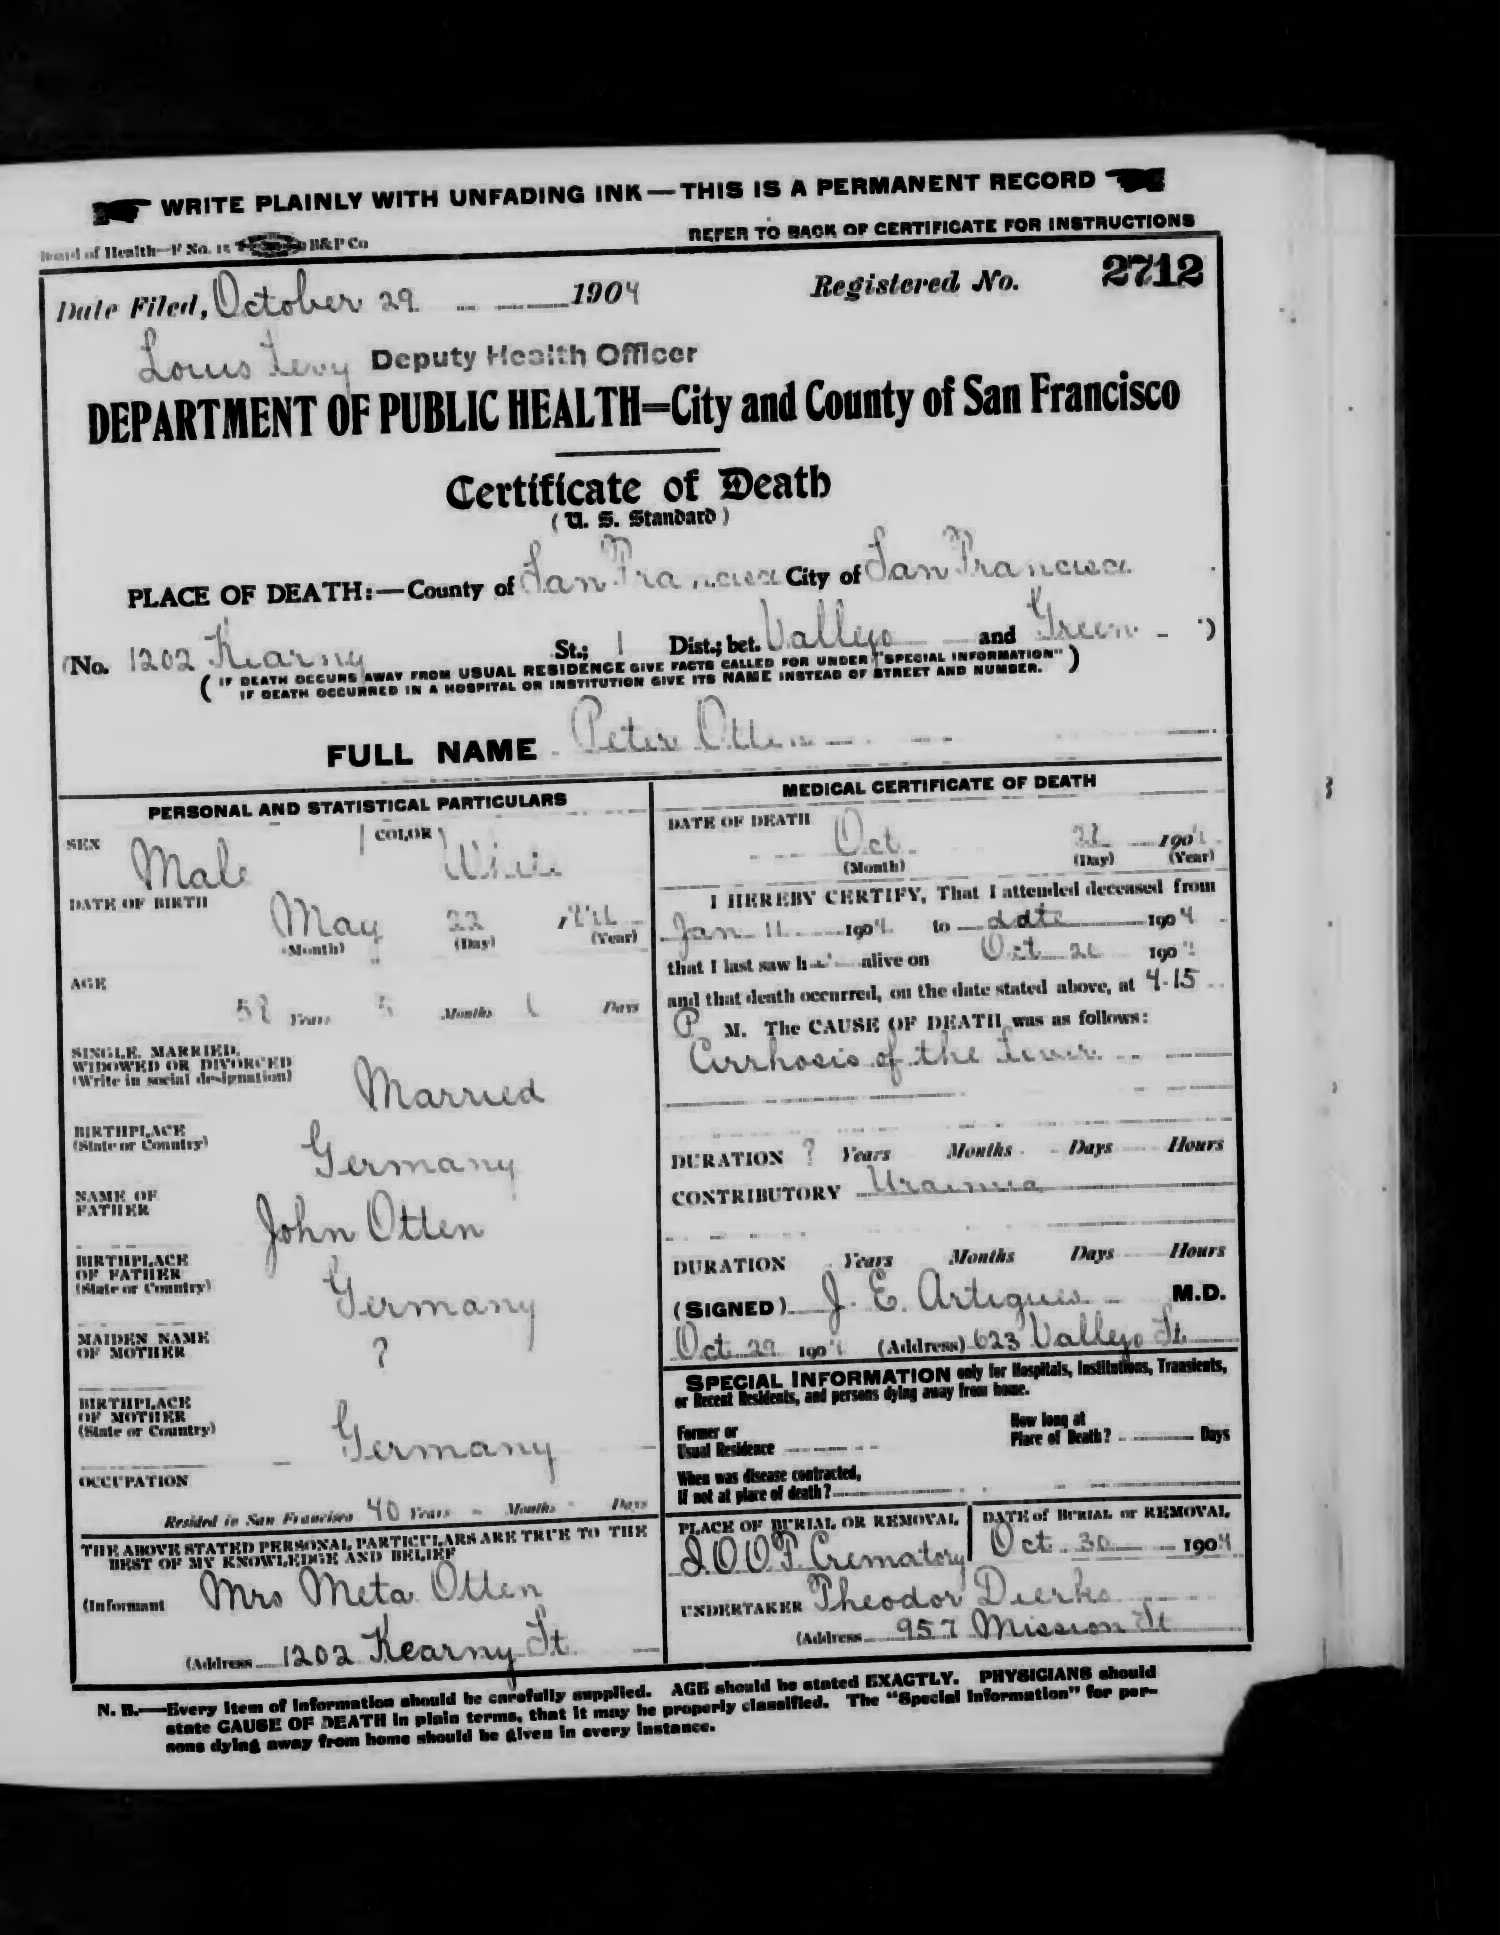 WRITE PLAINLY WITH UNFADING INK — THIS IS A PERMANENT RECORD
Board of Health—F No. 15 B&P Co
REFER TO BACK OF CERTIFICATE FOR INSTRUCTIONS
Date Filed, October 29 1904
Registered No. 2712
Louis Levy Deputy Health Officer
DEPARTMENT OF PUBLIC HEALTH=City and County of San Francisco
Certificate of Death
(U. S. Standard)
PLACE OF DEATH:—County of San Francisco City of San Francisco
(No. 1202 Kearny St.; 1 Dist.; bet. Vallejo and Green)
(IF DEATH OCCURS AWAY FROM USUAL RESIDENCE GIVE FACTS CALLED FOR UNDER "SPECIAL INFORMATION"
IF DEATH OCCURRED IN A HOSPITAL OR INSTITUTION GIVE ITS NAME INSTEAD OF STREET AND NUMBER.)
FULL NAME Peter Otten
PERSONAL AND STATISTICAL PARTICULARS
SEX Male COLOR White
DATE OF BIRTH May 22
(Month) (Day) (Year)
AGE 58 Years 5 Months Days
SINGLE, MARRIED,
WIDOWED OR DIVORCED
(Write in social designation)
Married
BIRTHPLACE
(State or Country)
Germany
NAME OF
FATHER
John Otten
BIRTHPLACE
OF FATHER
(State or Country)
Germany
MAIDEN NAME
OF MOTHER
?
BIRTHPLACE
OF MOTHER
(State or Country)
Germany
OCCUPATION
Resided in San Francisco 40 Years Months Days
THE ABOVE STATED PERSONAL PARTICULARS ARE TRUE TO THE
BEST OF MY KNOWLEDGE AND BELIEF
(Informant Mrs Meta Otten
(Address 1202 Kearny St
MEDICAL CERTIFICATE OF DEATH
DATE OF DEATH Oct 1904
(Month) (Day) (Year)
I HEREBY CERTIFY, That I attended deceased from
Jan 11 1904 to date 1904
that I last saw h alive on Oct 1904
and that death occurred, on the date stated above, at 4-15
P M. The CAUSE OF DEATH was as follows:
Cirrhosis of the Liver
DURATION ? Years Months Days Hours
CONTRIBUTORY Uraemia
DURATION Years Months Days Hours
(SIGNED) J. E. Artigues M.D.
Oct 29 1904 (Address) 623 Vallejo St
SPECIAL INFORMATION only for Hospitals, Institutions, Transients,
or Recent Residents, and persons dying away from home.
Former or
Usual Residence
How long at
Place of Death? Days
When was disease contracted,
If not at place of death?
PLACE OF BURIAL OR REMOVAL
I.O.O.F. Crematory
DATE of BURIAL or REMOVAL
Oct 30 1904
UNDERTAKER Theodor Dierks
(Address 957 Mission St
N. B.—Every item of information should be carefully supplied. AGE should be stated EXACTLY. PHYSICIANS should
state CAUSE OF DEATH in plain terms, that it may be properly classified. The "Special Information" for per-
sons dying away from home should be given in every instance.